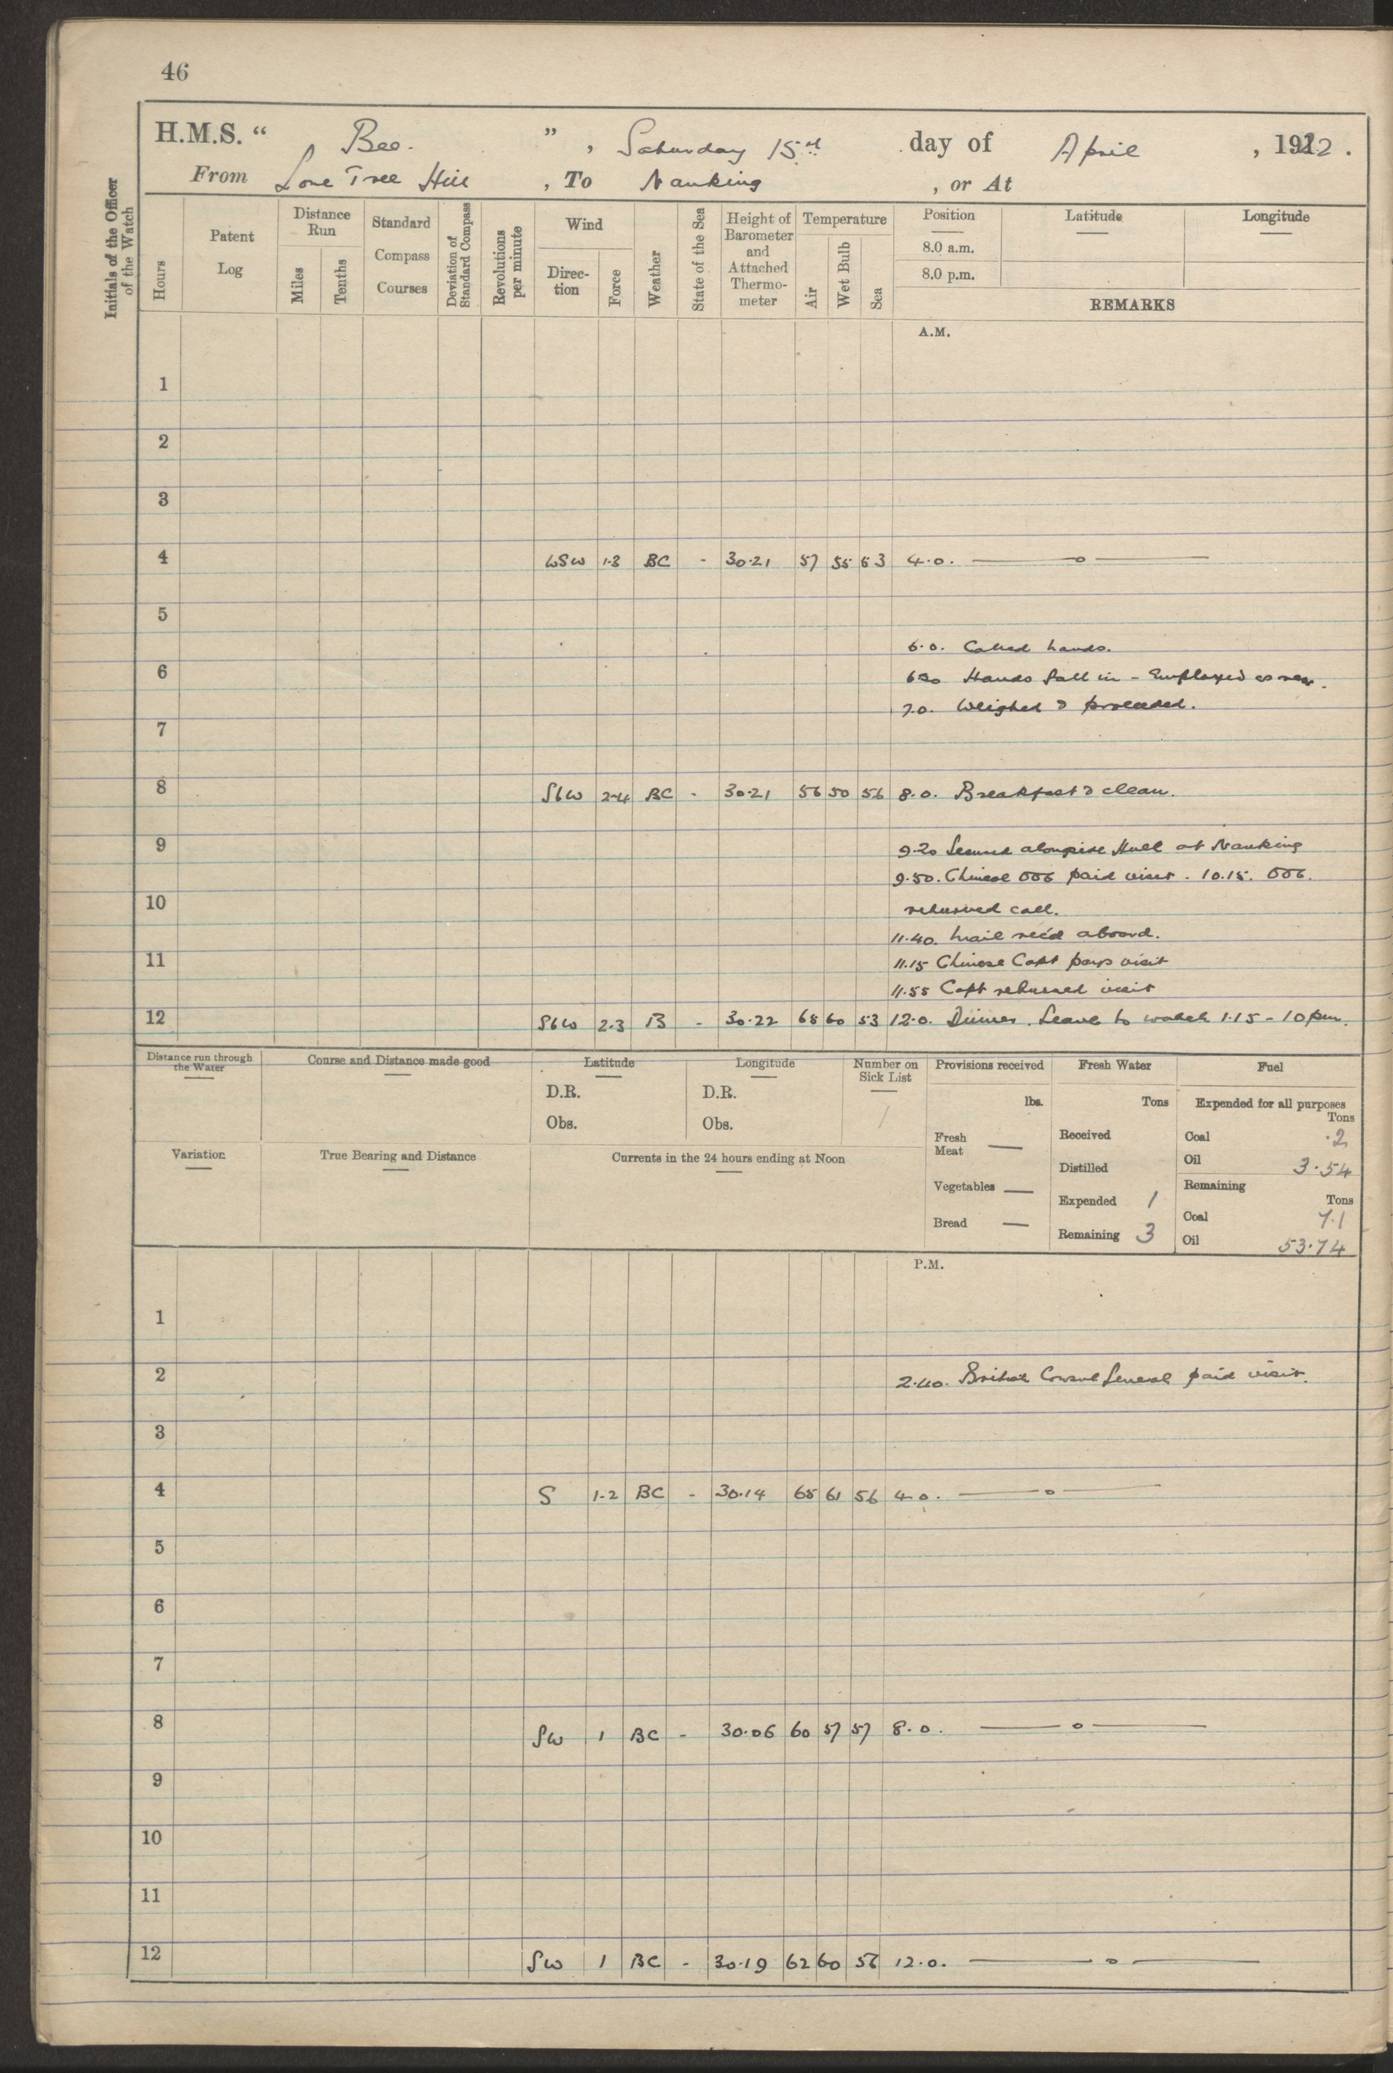 46
H.M.S. “ Bee. ” , Saturday 15th day of April , 1922 .
From Lone Tree Hill , To Nanking , or At
Initials of the Officer of the Watch
Hours
Patent Log
Distance Run
Miles
Tenths
Standard Compass Courses
Deviation of Standard Compass
Revolutions per minute
Wind
Direction
Force
Weather
State of the Sea
Height of Barometer and Attached Thermometer
Temperature
Air
Wet Bulb
Sea
Position Latitude Longitude
8.0 a.m.
8.0 p.m.
REMARKS
A.M.
1
2
3
4 WSW 1-3 BC - 30.21 57 55 53 4.0. —o—
5
6.0. Called hands.
6
630 Hands fall in - Employed as nec.
7.0. Weighed & proceeded.
7
8 SbW 2-4 BC - 30.21 56 50 56 8.0. Breakfast & clean.
9
9.20 Secured alongside Hulk at Nanking
9.50. Chinese OOG paid visit. 10.15. OOG.
10
returned call.
11.40. Mail rec'd aboard.
11
11.15 Chinese Capt pays visit
11.55 Capt returned visit
12 SbW 2.3 B - 30.22 68 60 53 12.0. Dinner. Leave to watch 1.15 - 10 pm.
Distance run through the Water
Course and Distance made good
Latitude
D.R.
Obs.
Longitude
D.R.
Obs.
Number on Sick List
1
Provisions received
lbs.
Fresh Meat —
Vegetables —
Bread —
Fresh Water
Tons
Received
Distilled
Expended 1
Remaining 3
Fuel
Expended for all purposes
Tons
Coal .2
Oil 3.54
Remaining
Tons
Coal 7.1
Oil 53.74
Variation
True Bearing and Distance
Currents in the 24 hours ending at Noon
P.M.
1
2 2.40. British Consul General paid visit.
3
4 S 1-2 BC - 30.14 65 61 56 4.0. —o—
5
6
7
8 SW 1 BC - 30.06 60 57 57 8.0. —o—
9
10
11
12 SW 1 BC - 30.19 62 60 56 12.0. —o—